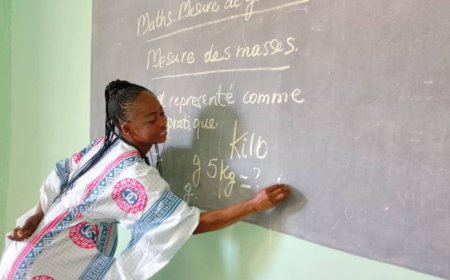 Maths Mesure de g
Mesure des masses.
représenté comme
pratique
Kilo
g 5kg = ?
g